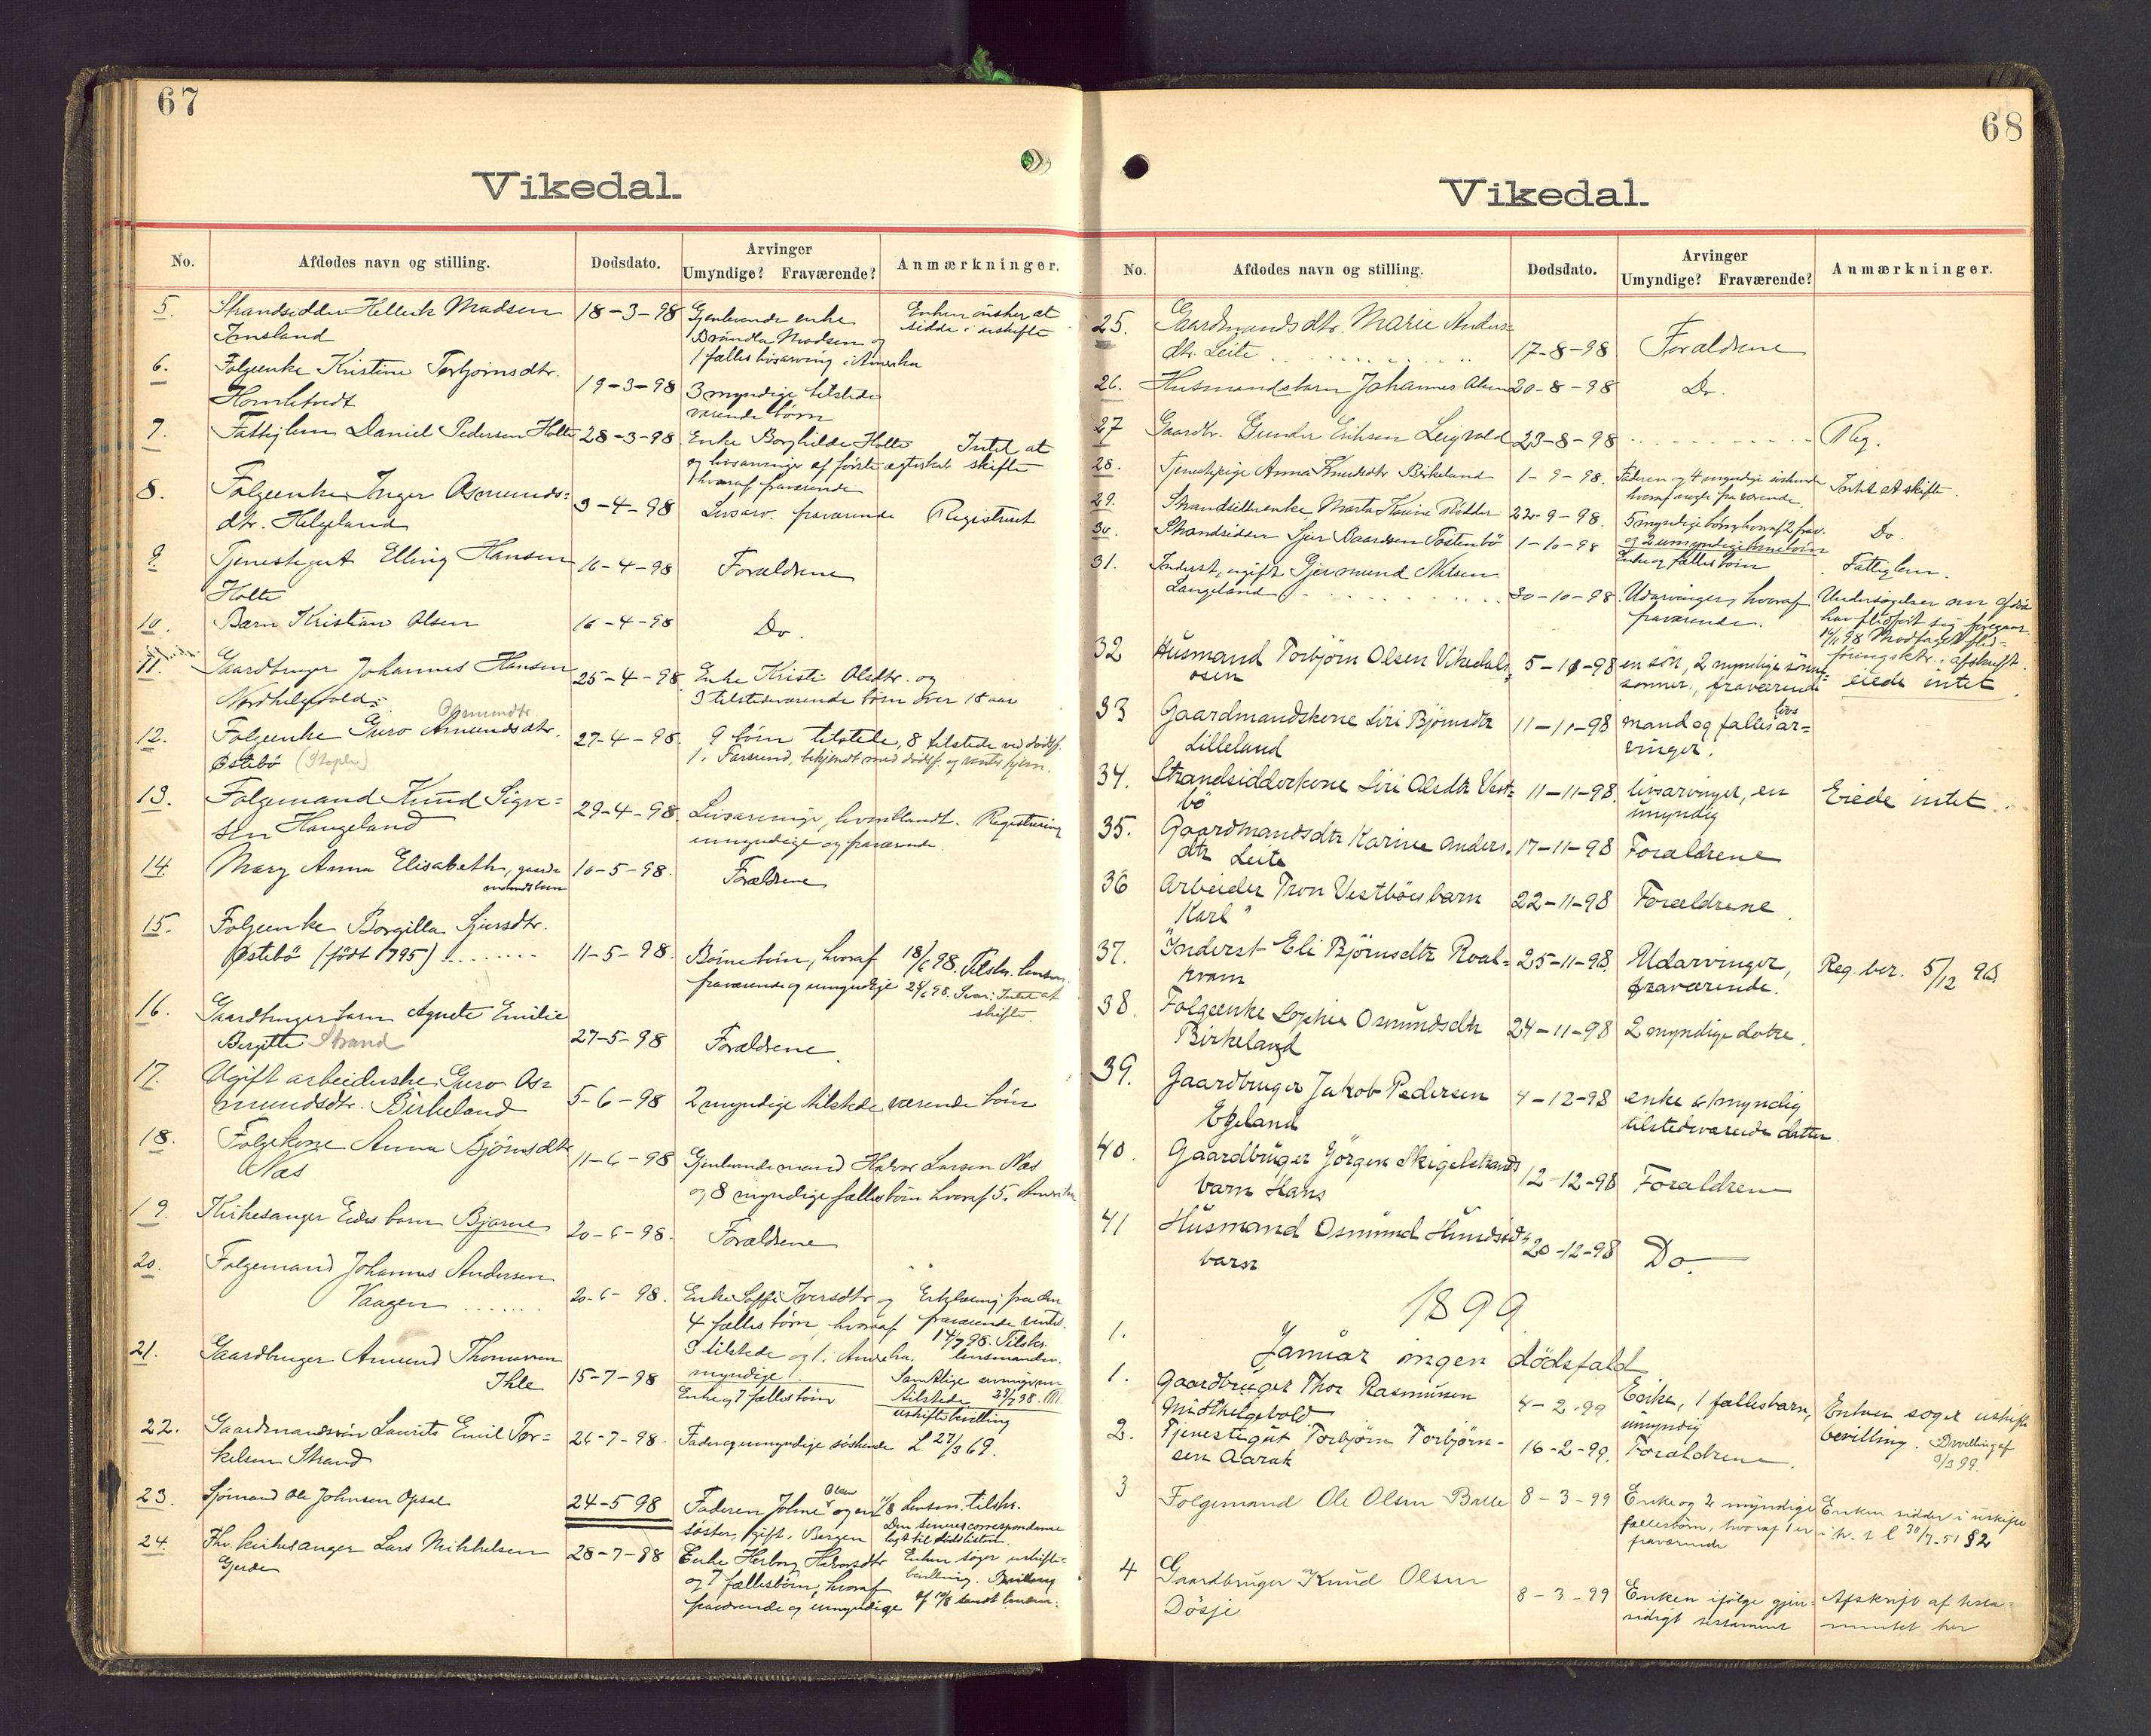 67
Vikedal.
No. Afdødes navn og stilling. Dødsdato. Arvinger Umyndige? Fraværende? Anmærkninger.
5. Strandsidder Hellik Madsen 18-3-98 Gjenlevende enke Enken ønsker at
Imsland Madsen og sidde i uskifte
1 fælles livsarving i Amerika
6. Følgeenke Kristine Torbjørnsdtr. 19-3-98 3 myndige tilstede
værende børn
7. Fattiglem Daniel Pedersen Holte 28-3-98 Enke Borghilde Holte Intet at
og livsarvinger af første ægteskab skifte
hvoraf fraværende
8. Følgeenke Inger Osmunds-
dtr. Helgeland 3-4-98 Livsarv. fraværende Registreret
9. Tjenestegut Elling Hansen 16-4-98 Forældrene
Holte
10. Barn Kristian Olsen 16-4-98 Do.
11. Gaardbruger Johannes Hansen 25-4-98 Enke Kristi Olsdtr. og
3 tilstedeværende børn over 18 aar
Osmundsdtr
12. Følgeenke Guro Amundsdtr. 27-4-98. 9 børn tilstede, 8 tilstede ved dødsf.
Østebø 1 i Farsund, bekjendt med dødsf. og ventes hjem.
13. Følgemand Knud Sigve=
sen Haugeland 29-4-98. Livsarvinger, hvoriblandt Registrering
umyndige og fraværende.
14. Mary Anna Elisabeth, gaard- 10-5-98. Forældrene
mandsbarn
15. Følgeenke Borgilla Sjursdtr.
Østebø (født 1795) ........ 11-5-98. Børnebørn, hvoraf 18/6 98. Tilskr. lensm.
fraværende og umyndige 24/6 98. Svar: Intet at
skifte.
16. Gaardbrugerbarn Agnete Emilie
Bergitte Strand 27-5-98 Forældrene.
17. Ugift arbeiderske Guro Os=
mundsdtr. Birkeland 5-6-98 2 myndige tilstede værende børn
18. Følgekone Anna Bjørnsdtr
Næs 11-6-98 Gjenlevende mand Halvor Larsen Næs
og 8 myndige fællesbørn hvoraf 5 i Amerika
19. Kirkesanger Eides barn Bjarne 20-6-98. Forældrene
20. Følgemand Johannes Andersen
Vaagen ....... 20-6-98. Enke Soffi Iversdtr og Erklæring fra den
4 fællesbørn, hvoraf fraværende ventes.
3 tilstede og 1 i Amerika. 14/7 98. Tilskr.
myndige. lensmanden.
21. Gaardbruger Amund Thomassen
Ihle 15-7-98 Enke og 7 fællesbørn Samtlige
tilstede
uskiftebevilling
22. Gaardmandssøn Laurits Emil Tor=
kelsen Strand 26-7-98. Fader og umyndige søskende L 27/3 69.
23. Sjømand Ole Johnsen Opsal 24-5 98 Faderen Johne Olsen og en 1/8 Lensm. tilskr.
søster, gift, Bergen Den senere correspondance
lagt til dødslisten.
24. Fhv. kirkesanger Lars Mikkelsen 28-7-98 Enke Herborg Halvorsdtr Enken søger uskifte-
Gjerde og 7 fællesbørn, hvoraf bevilling. Bevilling
fraværende og umyndige af sendt lensm.
68
Vikedal.
No. Afdødes navn og stilling. Dødsdato. Arvinger Umyndige? Fraværende? Anmærkninger.
25. Gaardmandsdtr. Marie Anders=
dtr. Leite ........ 17-8-98 Forældrene
26. Husmandsbarn Johannes Olsen 20-8-98 Do.
27 Gaardbr. Gunder Eriksen Leigvold 23-8-98 ......... Reg.
28. Tjenestepige Anna Knudsdtr Birkeland 1-9-98. Faderen og 4 myndige søskende Intet at skifte.
hvoraf nogle fraværende.
29. Strandsidderenke Marta Karine Rødder 22-9-98. 5 myndige børn, hvoraf 2 frav. Do.
og 2 umyndige børnebørn
30. Strandsidder Sjur Baardsen Tostenbø 1-10-98 Enke og fællesbørn Fattiglem.
31. Inderst, ugift Gjermund Nilsen
Langeland ........ 30-10-98. Udarvinger, hvoraf Undersøgelser om afdøde
fraværende. har fledført sig foregaar.
14/11 98 Modtaget fled-
føringsktr. i afskrift.
32 Husmand Torbjørn Olsen Vikedals 5-11-98 en søn, 2 myndige sønne-
osen sønner, fraværende eiede intet.
33 Gaardmandskone Siri Bjørnsdtr 11-11-98 mand og fælles livsar=
Lilleland vinger.
34. Strandsidderkone Siri Olsdtr Vest= 11-11-98. livsarvinger, en Eiede intet.
bø umyndig
35. Gaardmandsdtr Karine Anders. 17-11-98 Forældrene
dtr Leite
36 Arbeider Tron Vestbøes barn 22-11-98 Forældrene.
"Karl"
37. Inderst Eli Bjørnsdtr Roal= 25-11-98. Udarvinger, Reg. ber. 5/12 98
kvam fraværende.
38. Følgeenke Sophie Osmundsdtr 24-11-98 2 myndige døtre.
Birkeland
39. Gaardbruger Jakob Pedersen 4-12-98 enke & 1 myndig
Egeland tilstedeværende datter.
40. Gaardbruger Jørgen Skigelstrands 12-12-98 Forældrene
barn Hans
41 Husmand Osmund Hundseids 20-12-98 Do.
barn
1899
1. Januar ingen dødsfald
1. Gaardbruger Thor Rasmussen 4-2-99 Enke, 1 fællesbarn, Enken søger uskifte
Midthelgevold. umyndig bevilling. Bevilling af
9/3 99.
2. Tjenestegut Torbjørn Torbjørn- 16-2-99. Forældrene.
sen Aarak
3 Følgemand Ole Olsen Batte 8-3-99 Enke og 2 myndige Enken sidder i uskifte
fællesbørn, hvoraf 1 er i h. t. l 30/7-51 § 2
fraværende
4 Gaardbruger Knud Olsen
Døsje 8-3-99 Enken ifølge gjen- Afskrift af testa-
sidigt testament mentet her